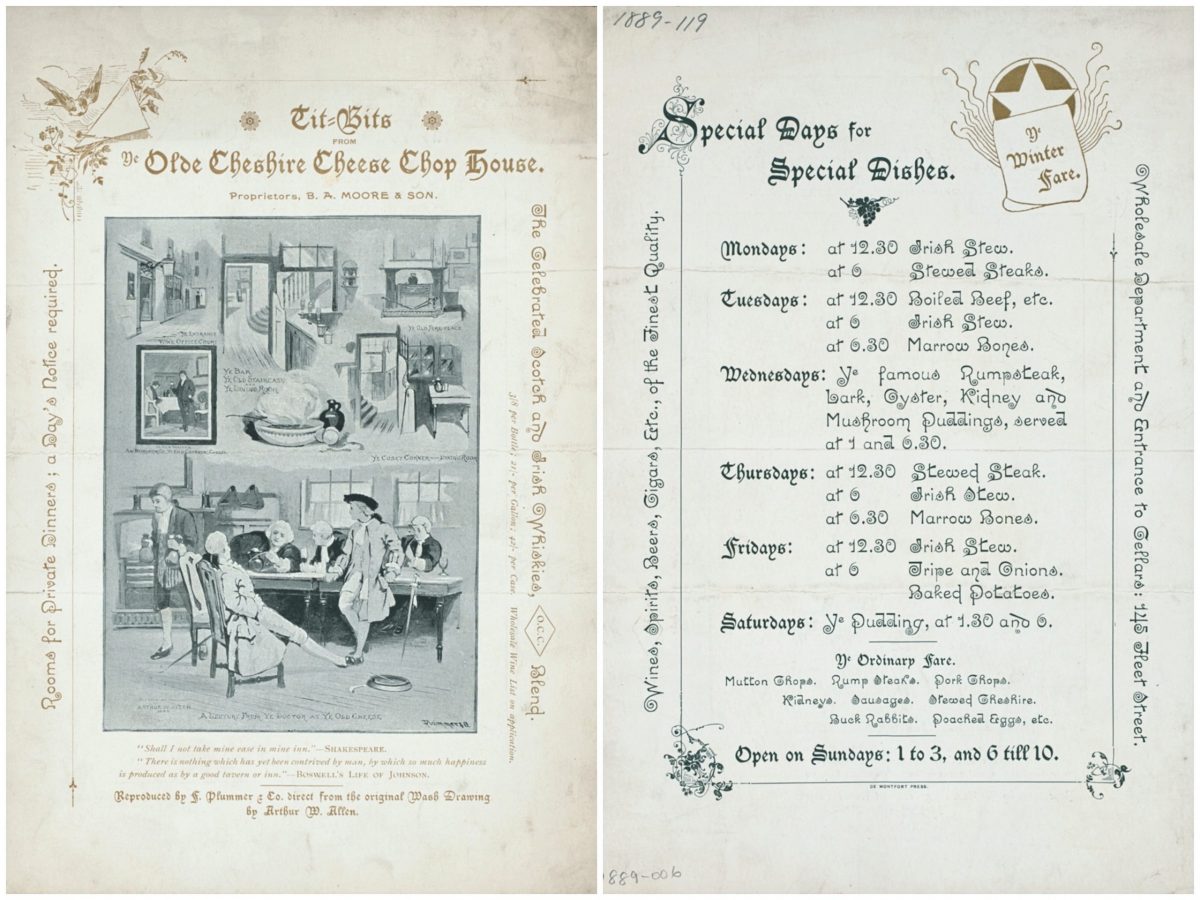 Tit=Bits
FROM
Ye Olde Cheshire Cheese Chop House.
Proprietors, B. A. MOORE & SON.
Rooms for Private Dinners; a Day's Notice required.
YE ENTRANCE
WINE OFFICE COURT
YE OLD FIRE-PLACE
YE BAR
YE OLD STAIRCASE
YE DINING ROOM
YE COSEY CORNER—DINING ROOM
A LECTURE FROM YE DOCTOR AT YE OLD CHEESE
The Celebrated Scotch and Irish Whiskies, O.C.C. Blend.
3/6 per Bottle; 21/- per Gallon; 42/- per Case. Wholesale Wine List on application.
"Shall I not take mine ease in mine inn."—SHAKESPEARE.
"There is nothing which has yet been contrived by man, by which so much happiness
is produced as by a good tavern or inn."—BOSWELL'S LIFE OF JOHNSON.
Reproduced by F. Plummer & Co. direct from the original Wash Drawing
by Arthur W. Allen.
1889-119
Special Days for
Special Dishes.
Ye
Winter
Fare.
Wines, Spirits, Beers, Cigars, Etc., of the Finest Quality.
Mondays: at 12.30 Irish Stew.
at 6 Stewed Steaks.
Tuesdays: at 12.30 Boiled Beef, etc.
at 6 Irish Stew.
at 6.30 Marrow Bones.
Wednesdays: Ye famous Rumpsteak,
Lark, Oyster, Kidney and
Mushroom Puddings, served
at 1 and 6.30.
Thursdays: at 12.30 Stewed Steak.
at 6 Irish Stew.
at 6.30 Marrow Bones.
Fridays: at 12.30 Irish Stew.
at 6 Tripe and Onions.
Baked Potatoes.
Saturdays: Ye Pudding, at 1.30 and 6.
Ye Ordinary Fare.
Mutton Chops. Rump Steaks. Pork Chops.
Kidneys. Sausages. Stewed Cheshire.
Buck Rabbits. Poached Eggs, etc.
Open on Sundays: 1 to 3, and 6 till 10.
DE MONTFORT PRESS.
Wholesale Department and Entrance to Cellars: 145 Fleet Street.
889-006